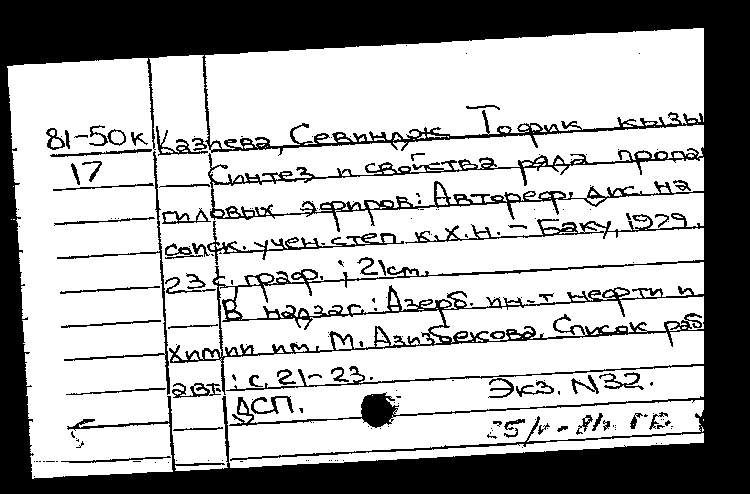 81-50к Казиева, Севиндж Тофик кызы
17 Синтез и свойства ряда пропар
гиловых эфиров: Автореф. дис. на
соиск. учен. степ. к.х.н. - Баку, 1979.
23 с., граф. ; 21 см.
В надзаг.: Азерб. ин-т нефти и
химии им. М. Азизбекова. Список раб.
авт.: с. 21-23.
ДСП. Экз. N32.